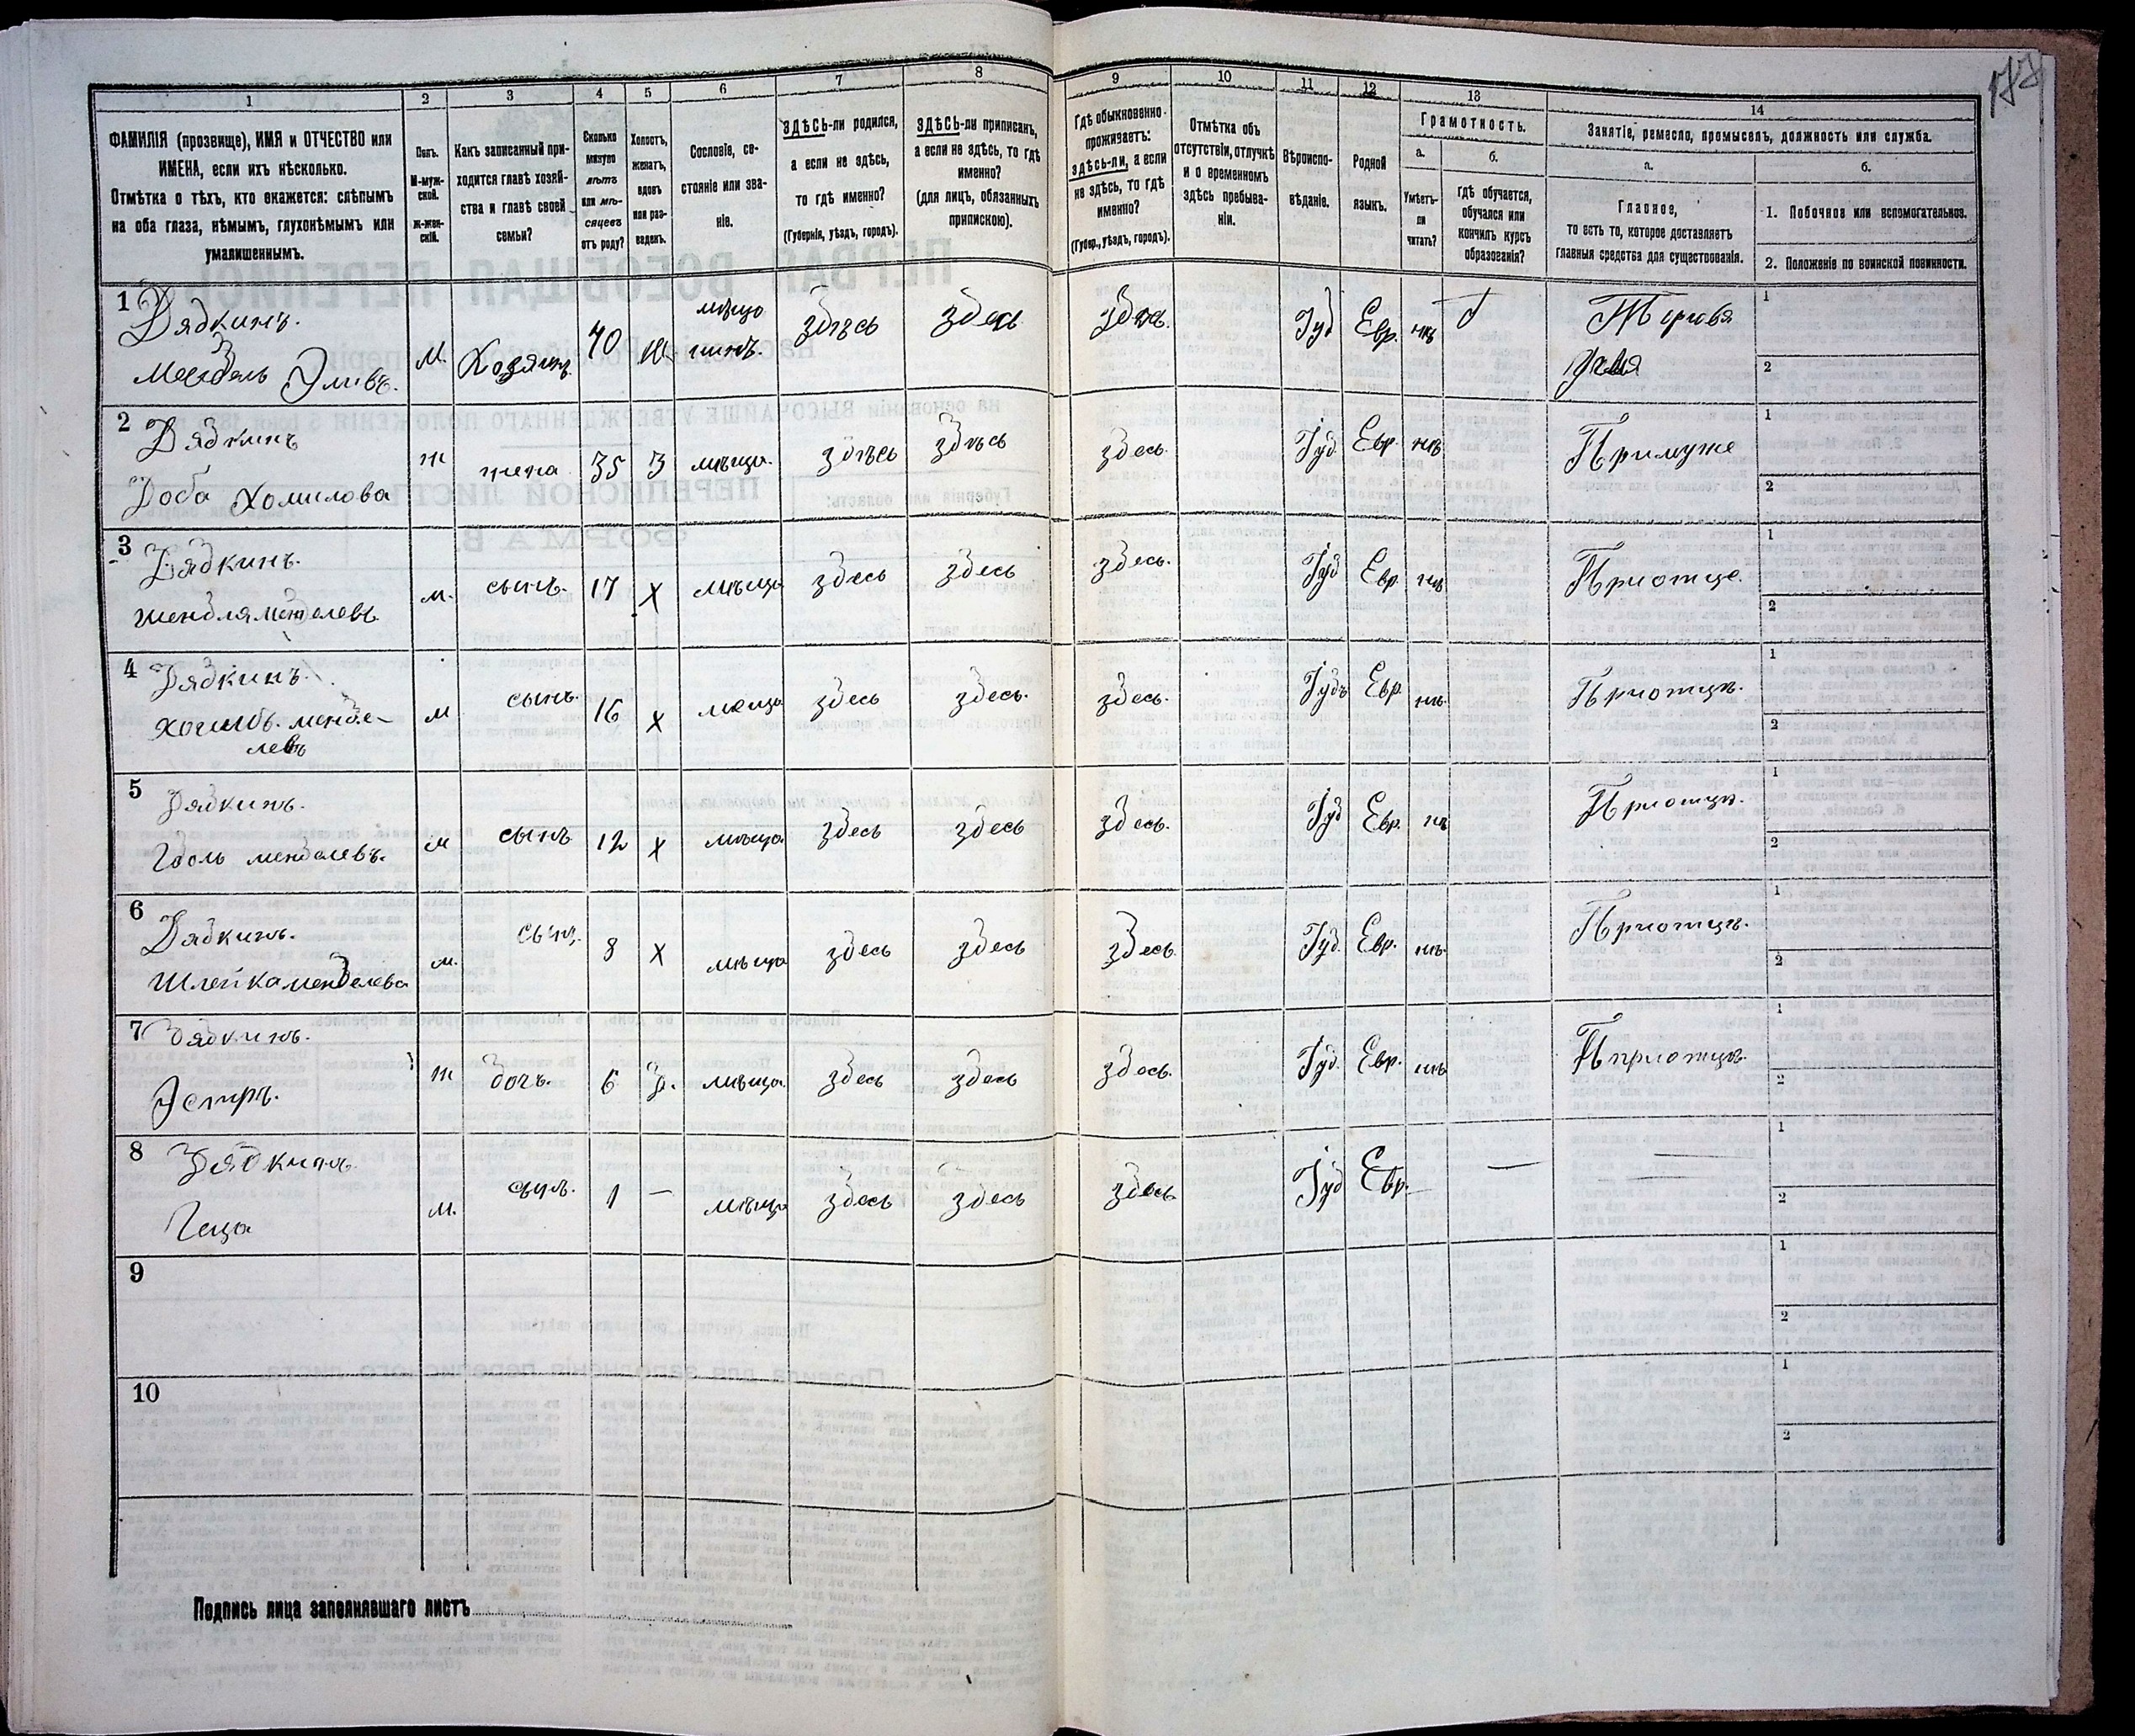 1
2
3
4
5
6
7
8
ФАМИЛІЯ (прозвище), ИМЯ и ОТЧЕСТВО или
ИМЕНА, если ихъ нѣсколько.
Отмѣтка о тѣхъ, кто окажется: слѣпымъ
на оба глаза, нѣмымъ, глухонѣмымъ или
умалишеннымъ.
Полъ.
М-муж-
ской.
ж-жен-
скій.
Какъ записанный при-
ходится главѣ хозяй-
ства и главѣ своей
семьи?
Сколько
минуло
лѣтъ
или мѣ-
сяцевъ
отъ роду?
Холостъ,
женатъ,
вдовъ
или раз-
веденъ.
Сословіе, со-
стояніе или зва-
ніе.
ЗДѢСЬ-ли родился,
а если не здѣсь,
то гдѣ именно?
(Губернія, уѣздъ, городъ).
ЗДѢСЬ-ли приписанъ,
а если не здѣсь, то гдѣ
именно?
(для лицъ, обязанныхъ
припискою).
9
10
11
12
13
14
Гдѣ обыкновенно
проживаетъ:
здѣсь-ли, а если
не здѣсь, то гдѣ
именно?
(Губер., уѣздъ, городъ).
Отмѣтка объ
отсутствіи, отлучкѣ
и о временномъ
здѣсь пребыва-
ніи.
Вѣроиспо-
вѣданіе.
Родной
языкъ.
Грамотность.
а.
Умѣетъ-
ли
читать?
б.
Гдѣ обучается,
обучался или
кончилъ курсъ
образованія?
Занятіе, ремесло, промыселъ, должность или служба.
а.
Главное,
то есть то, которое доставляетъ
главныя средства для существованія.
б.
1. Побочное или вспомогательное.
2. Положеніе по воинской повинности.
1 Дядкинъ.
Мендель
м. Хозяинъ 40
мѣща
нинъ.
здѣсь здѣсь здѣсь. Іуд Евр. нѣ
1
2
2 Дядкинъ
Доба Хомилова
ж жена 35 З мѣща. здѣсь здѣсь здесь. Іуд Евр. нѣ Примуже
1
2
3 Дядкинъ.
м. сынъ. 17 х мѣща здесь здесь здесь. Іуд Евр. нѣ Приотце.
1
2
4 Дядкинъ.
менде-
левъ
м сынъ 16 х меща здесь здесь. здесь. Іудъ Евр нѣ. Приотцѣ.
1
2
5 Дядкинъ.
менделевъ.
м сынъ 12 х мѣща здесь здесь здесь. Іуд Евр. нѣ Приотцѣ.
1
2
6 Дядкинъ.
Шлейка менделева
м. сынъ 8 х мѣща здесь здесь здесь. Іуд. Евр. нѣ Приотцѣ.
1
2
7 Дядкинъ.
Эстиръ.
ж дочь. 6 Д. мѣща. здесь здесь здесь. Іуд. Евр. нѣ
1
2
8 Дядкинъ
м. сынъ. 1 — мѣща здесь здесь здесь Іуд Евр. — —
1
2
9
1
2
10
1
2
Подпись лица заполнявшаго листъ